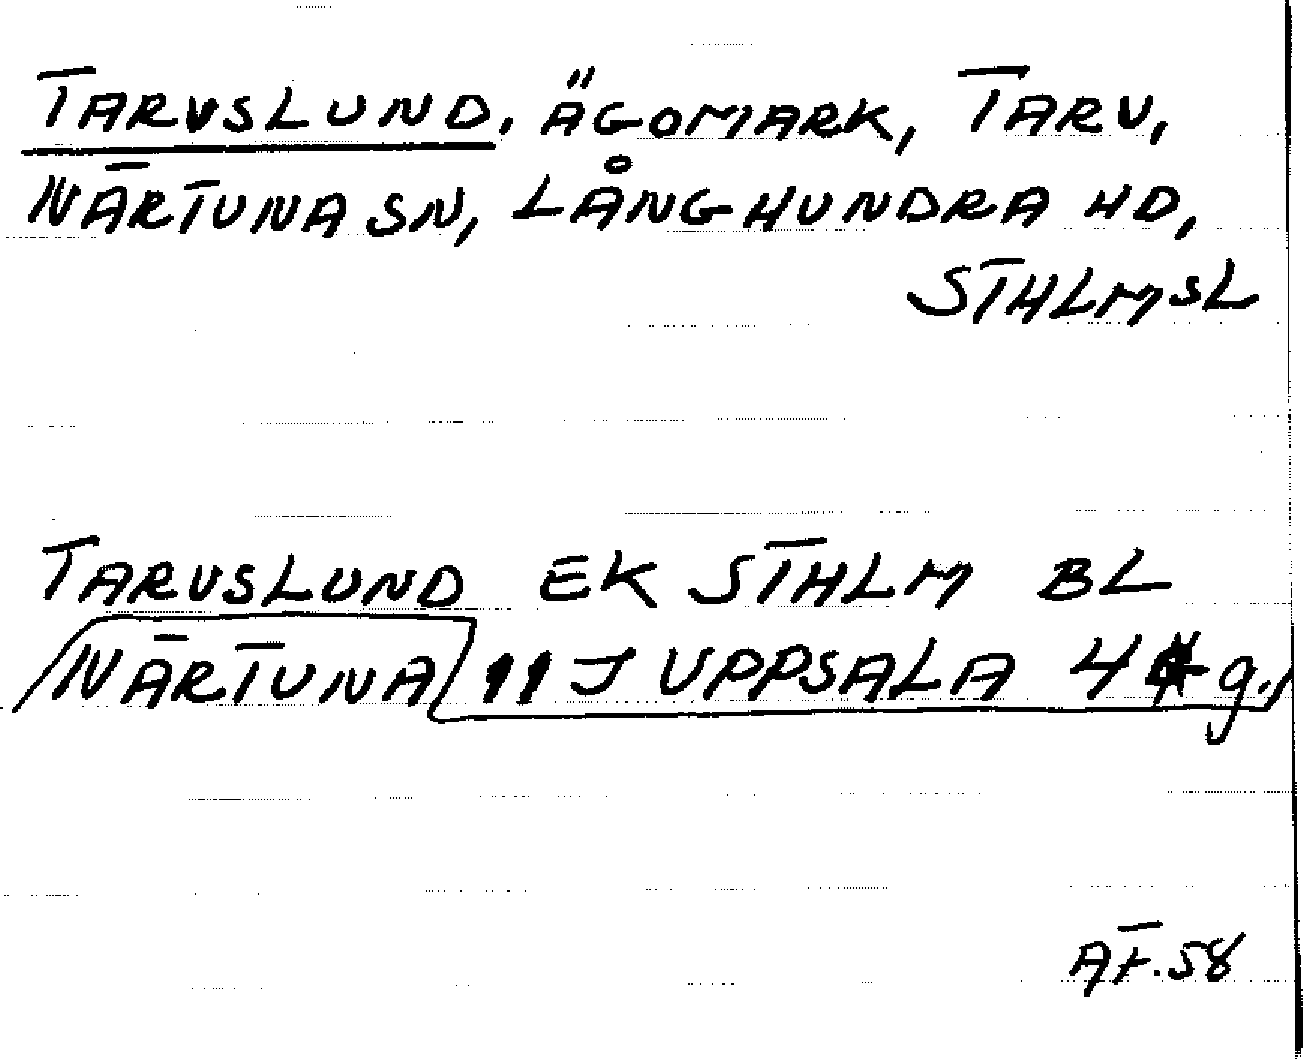 TARVSLUND, ÄGOMARK, TARV,
NÄRTUNA SN, LÅNGHUNDRA HD,
STHLMSL
TARVSLUND EK STHLM BL
NÄRTUNA 11 J UPPSALA 4 g.
AF.58